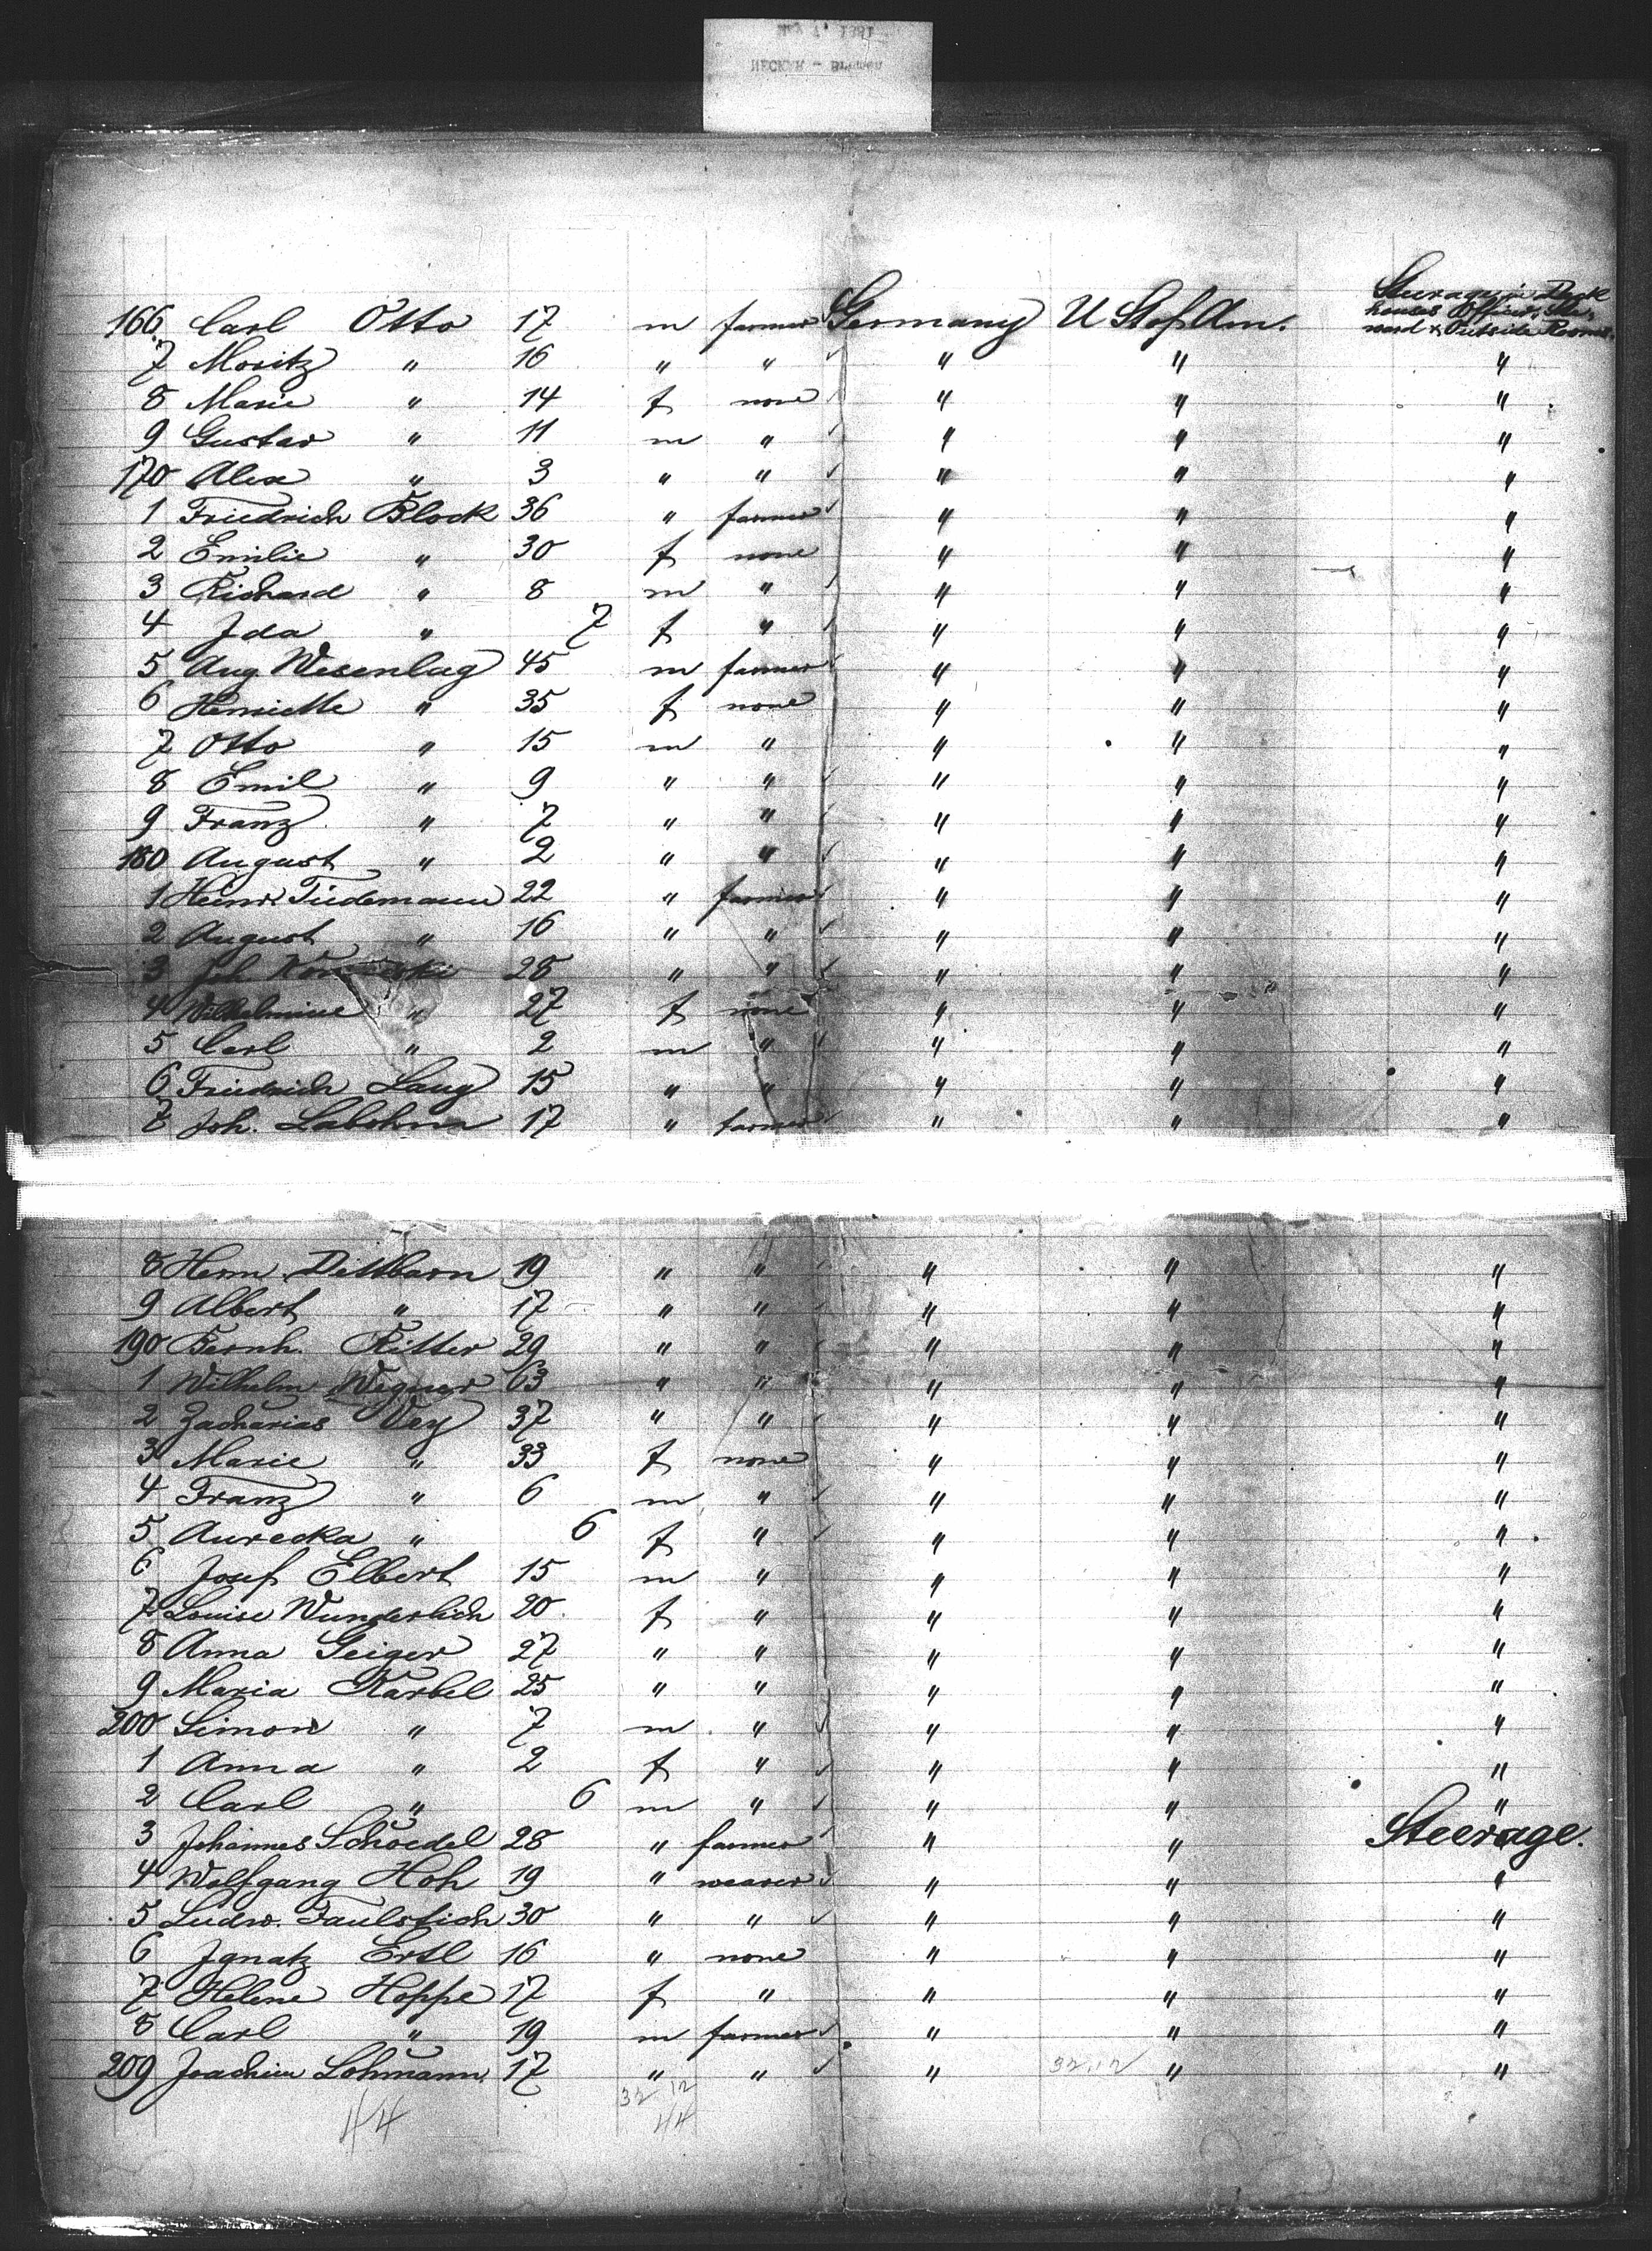 May 7, 1881
NECKAR - Bremen
Steerage in Deck
houses Officer, Ste-
ward & Outside Rooms.
166 Carl Otto 17 m farmer Germany U St of Am.
7 Moritz " 16 " " " " "
8 Marie " 14 f none " " "
9 Gustav " 11 m " " " "
170 Alex " 3 " " " " "
1 Friedrich Block 36 " farmer " " "
2 Emilie " 30 f none " " "
3 Richard " 8 m " " " "
4 Ida " 7 f " " " "
5 Aug. Wesenlug 45 m farmer " " "
6 Henriette " 35 f none " " "
7 Otto " 15 m " " " "
8 Emil " 9 " " " " "
9 Franz " 7 " " " " "
180 August " 2 " " " " "
1 Heinr. Tiedemann 22 " farmer " " "
2 August " 16 " " " " "
3 Joh 28 " " " " "
4 Wilhelmine " 27 f none " " "
5 Carl " 2 m " " " "
6 Friedrich Laug 15 " " " " "
7 Joh. Labohm 17 " farmer " " "
8 Herm. Dittbarn 19 " " " " "
9 Albert " 17 " " " " "
190 Bernh. Ritter 29 " " " " "
1 Wilhelm Wegner 63 " " " " "
2 Zacharias Vey 37 " " " " "
3 Marie " 33 f none " " "
4 Franz " 6 m " " " "
5 Aurecka " 6 f " " " "
6 Josef Elbert 15 m " " " "
7 Louise Wunderlich 20 f " " " "
8 Anna Geiger 27 " " " " "
9 Maria Karbel 25 " " " " "
200 Simon " 7 m " " " "
1 Anna " 2 f " " " "
2 Carl " 6 m " " " "
3 Johannes Schoedel 28 " farmer " " Steerage.
4 Wolfgang Hoh 19 " weaver " " "
5 Ludw. Faulstich 30 " " " " "
6 Ignatz Ertl 16 " none " " "
7 Helene Hoppe 17 f " " " "
8 Carl " 19 m farmer " " "
209 Joachim Lohmann 17 " " " 32.12 " "
32 12
44 44